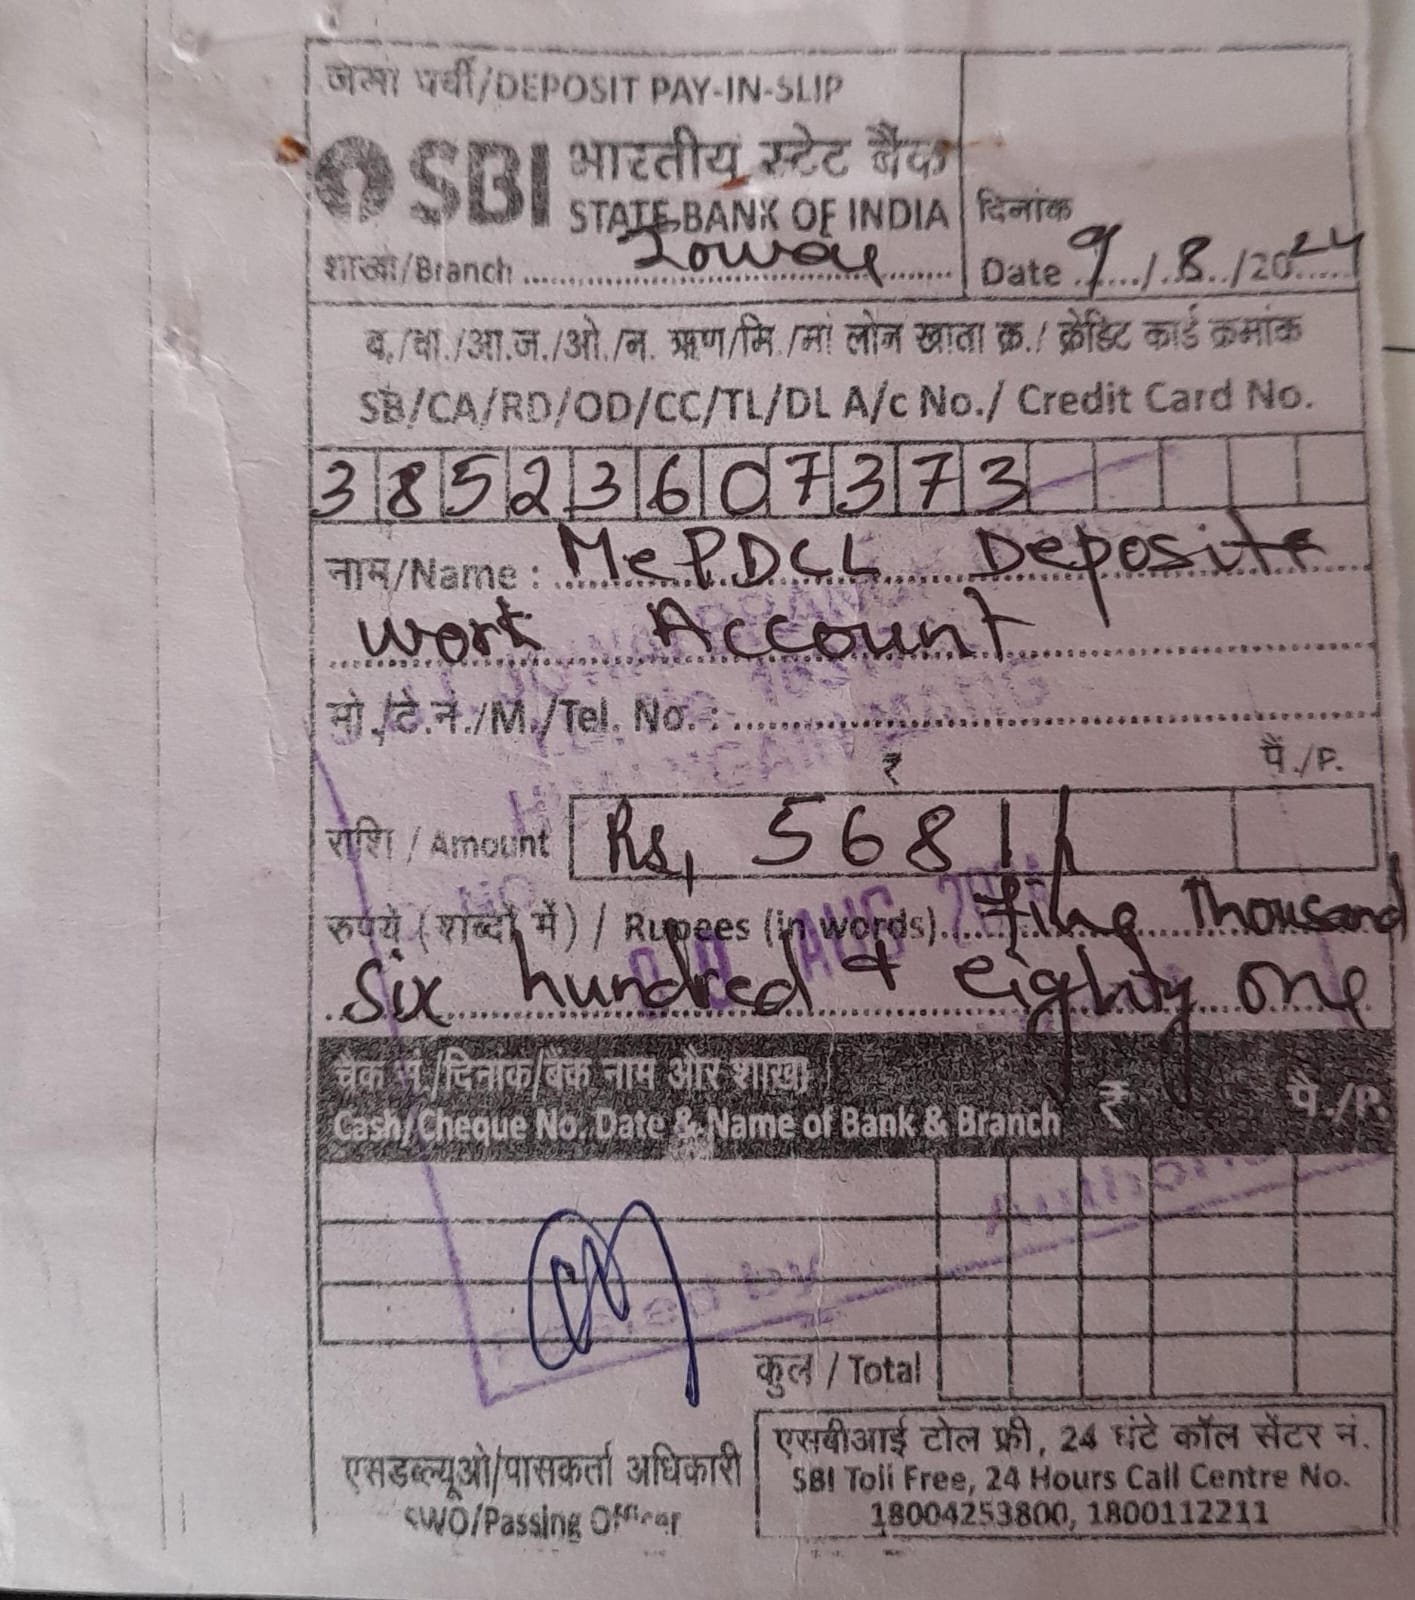 जमा पर्ची/DEPOSIT PAY-IN-SLIP
SBI भारतीय स्टेट बैंक
STATE BANK OF INDIA
शाखा/Branch
दिनांक
Date 9/8/2024
ब./चा./आ.ज./ओ./न. ऋण/मि./मां लोन खाता क्र./ क्रेडिट कार्ड क्रमांक
SB/CA/RD/OD/CC/TL/DL A/c No./ Credit Card No.
38523607373
नाम/Name : MePDCL Deposite
work Account
मो./टे.नं./M./Tel. No. :
₹ पै./P.
राशि / Amount Rs, 5681/
रुपये (शब्दों में) / Rupees (in words) Five Thousand
Six hundred & eighty one
चेक नं./दिनांक/बैंक नाम और शाखा
Cash/Cheque No. Date & Name of Bank & Branch ₹ पै./P.
कुल / Total
एसडब्ल्यूओ/पासकर्ता अधिकारी
SWO/Passing Officer
एसबीआई टोल फ्री, 24 घंटे कॉल सेंटर नं.
SBI Toll Free, 24 Hours Call Centre No.
18004253800, 1800112211